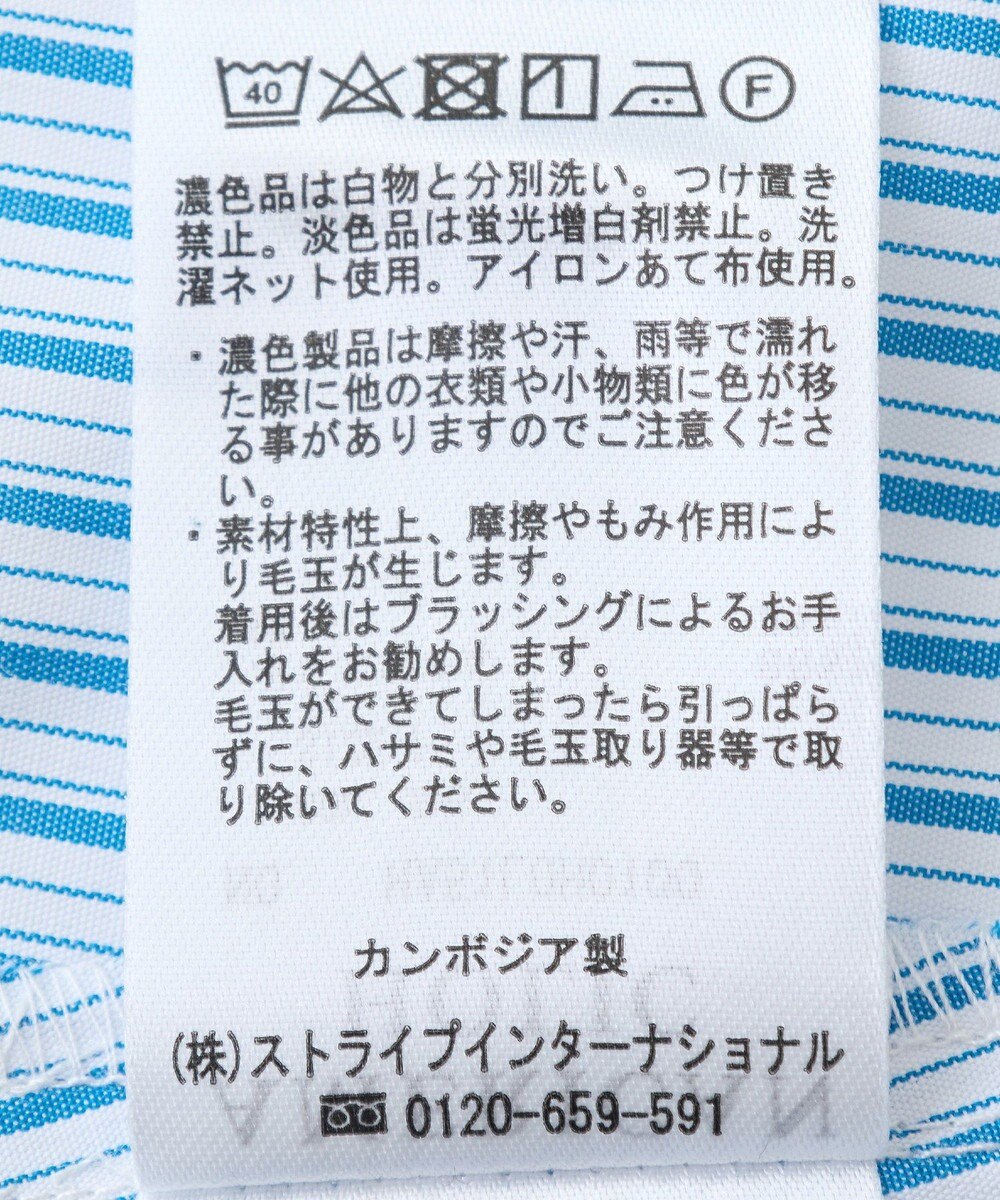 40
F
濃色品は白物と分別洗い。つけ置き
禁止。淡色品は蛍光増白剤禁止。洗
濯ネット使用。アイロンあて布使用。
・濃色製品は摩擦や汗、雨等で濡れ
た際に他の衣類や小物類に色が移
る事がありますのでご注意くださ
い。
・素材特性上、摩擦やもみ作用によ
り毛玉が生じます。
着用後はブラッシングによるお手
入れをお勧めします。
毛玉ができてしまったら引っぱら
ずに、ハサミや毛玉取り器等で取
り除いてください。
カンボジア製
(株)ストライプインターナショナル
0120-659-591